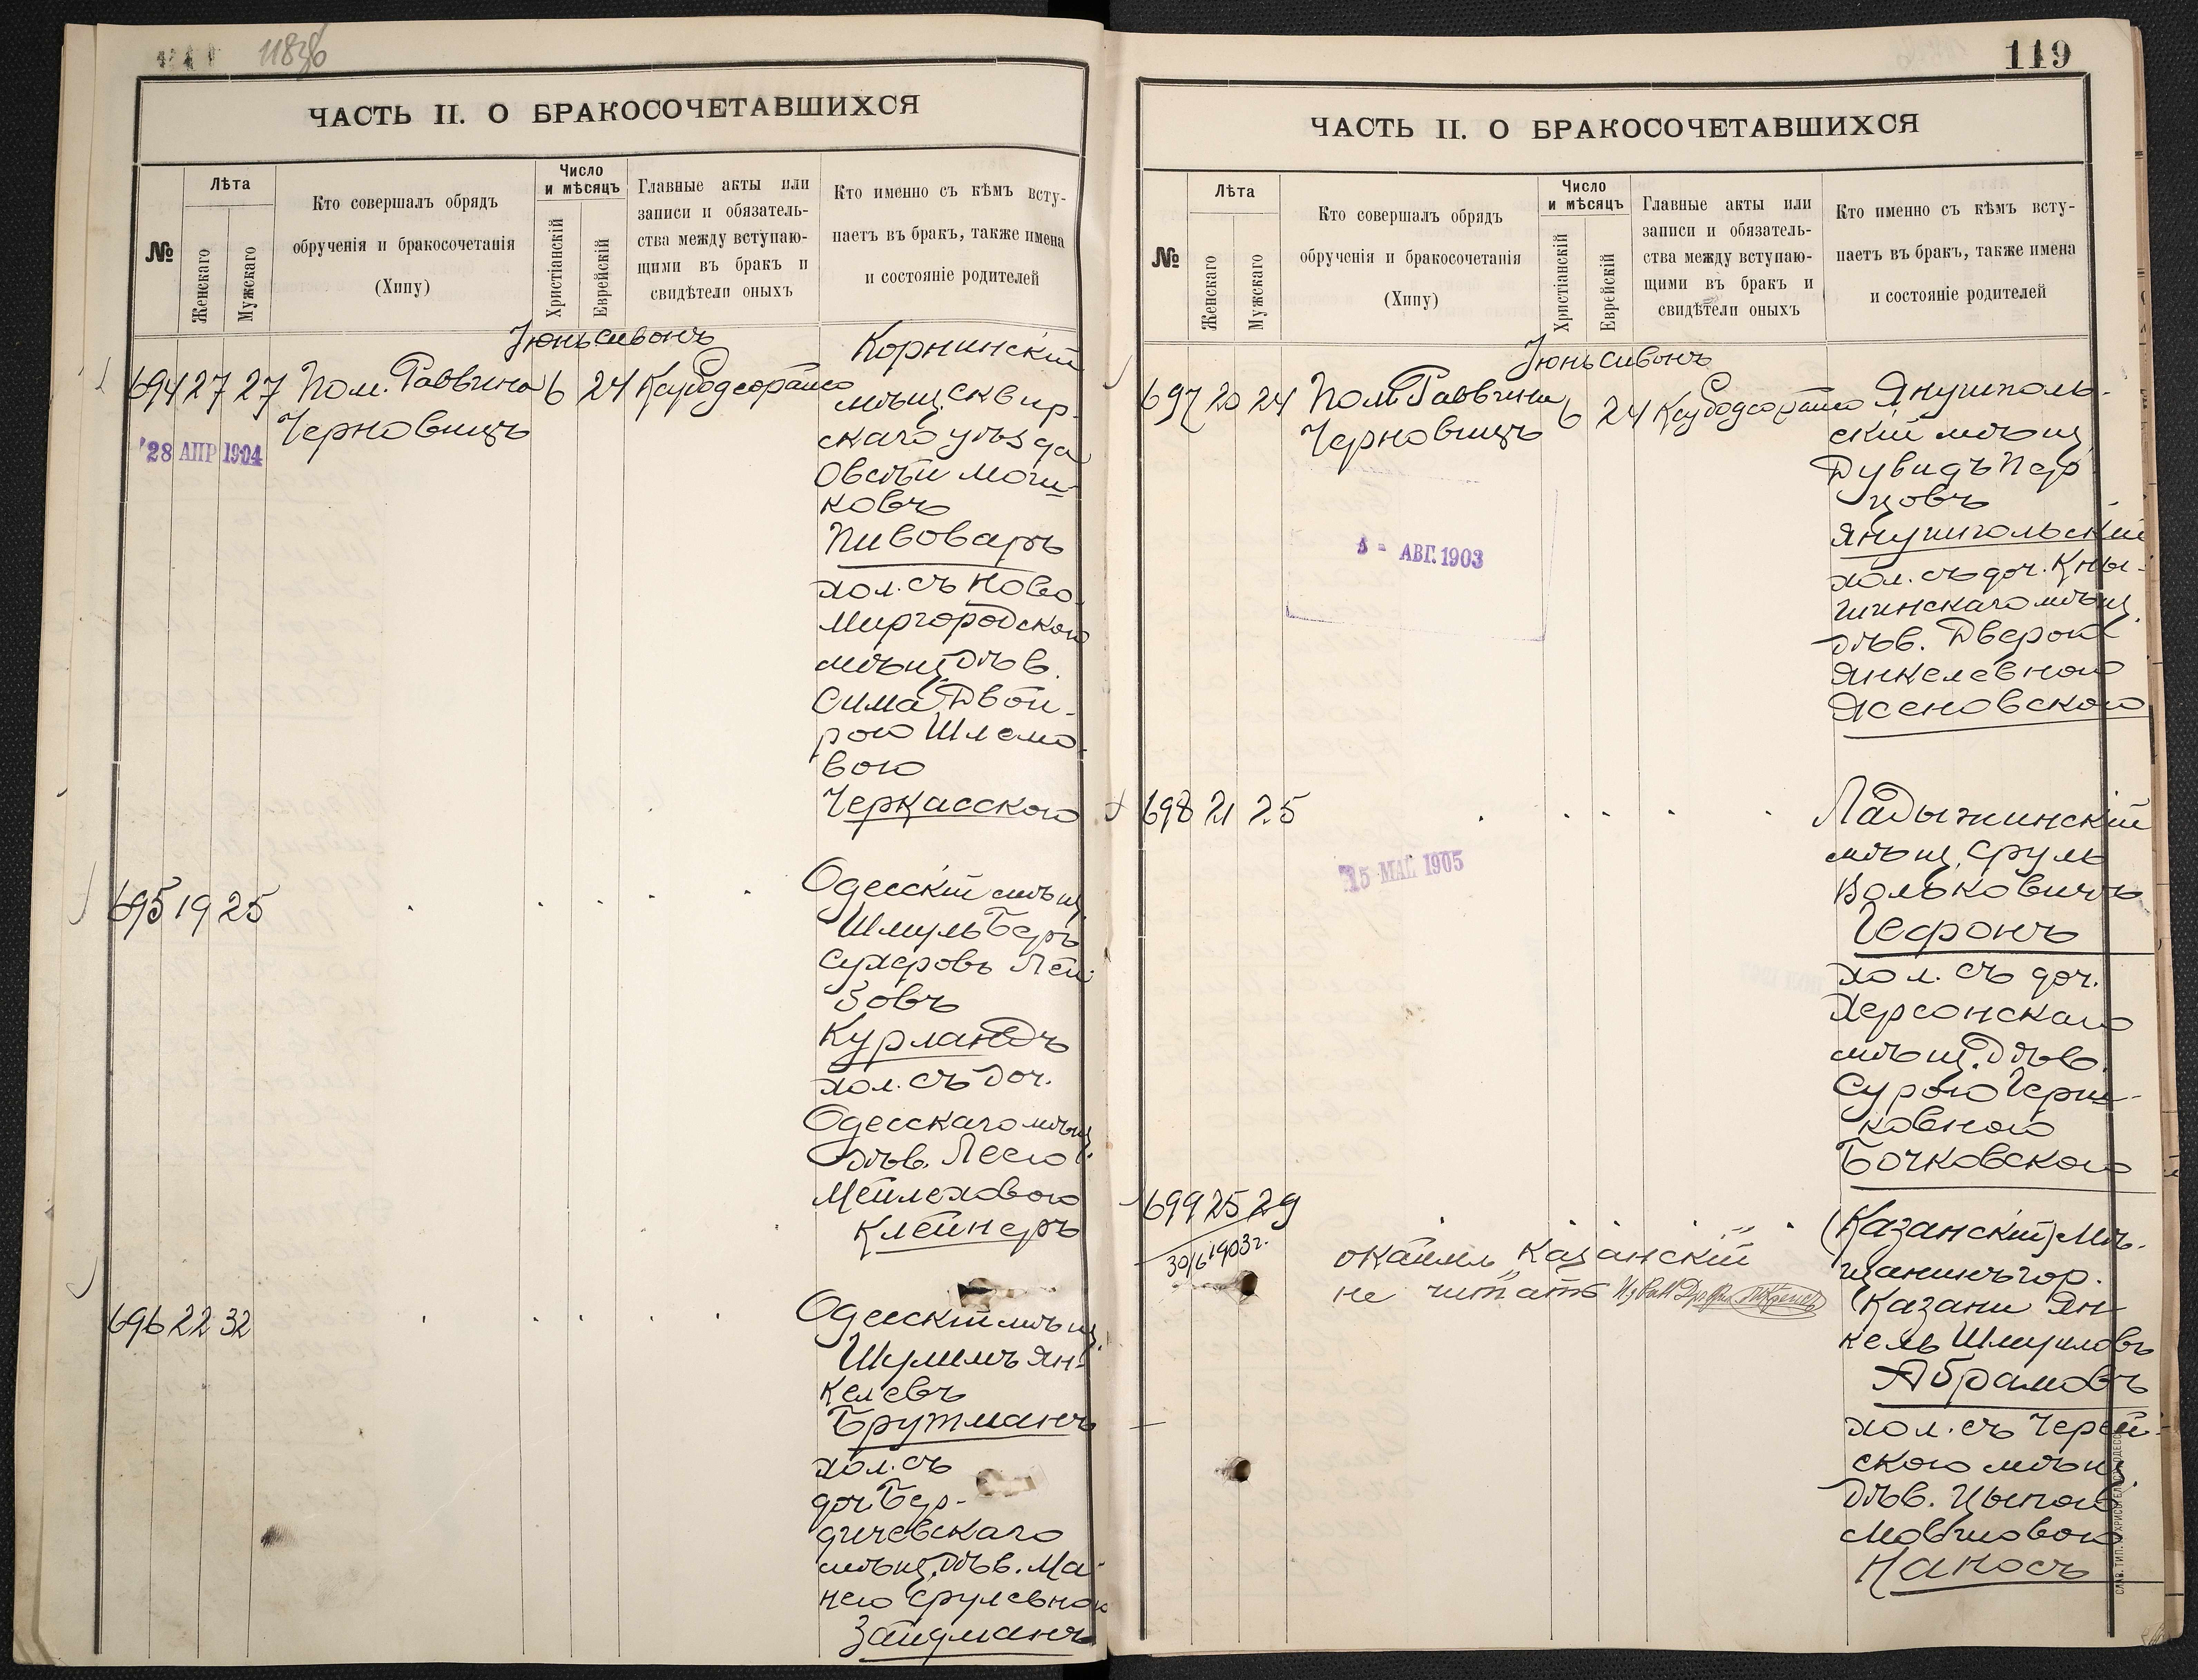 118об
ЧАСТЬ II. О БРАКОСОЧЕТАВШИХСЯ
№
Лѣта
Женскаго
Мужскаго
Кто совершалъ обрядъ
обрученія и бракосочетанія
(Хипу)
Число
и мѣсяцъ
Христіанскій
Еврейскій
Главные акты или
записи и обязатель-
ства между вступаю-
щими въ бракъ и
свидѣтели оныхъ
Кто именно съ кѣмъ всту-
паетъ въ бракъ, также имена
и состояніе родителей
Іюнь Сивонъ
694 27 27 Пом. Раввина 6 24
Черновицъ
28 АПР 1904
Корнинскій
мѣщ. Сквир-
скаго уѣзда
Овсѣй Мош-
ковъ
Пивоваръ
хол. съ Ново-
Миргородскою
мѣщ. дѣв.
Сима Двой-
рою Шлемо-
вою
Черкасскою
695 19 25
Одесскій мѣщ.
Шмуль Беръ
Сухеровъ Лей
зовъ
Курландъ
хол. съ доч.
Одесскаго мѣщ.
дѣв. Леею
Мейлеховою
Клейнеръ
696 22 32
Одесскій мѣщ.
Шулимъ Ян-
келевъ
Брутманъ
хол. съ
доч. Бер-
дичевскаго
мѣщ. дѣв. Ма-
нею Срулевною
Зайдманъ
119
ЧАСТЬ II. О БРАКОСОЧЕТАВШИХСЯ
№
Лѣта
Женскаго
Мужскаго
Кто совершалъ обрядъ
обрученія и бракосочетанія
(Хипу)
Число
и мѣсяцъ
Христіанскій
Еврейскій
Главные акты или
записи и обязатель-
ства между вступаю-
щими въ бракъ и
свидѣтели оныхъ
Кто именно съ кѣмъ всту-
паетъ въ бракъ, также имена
и состояніе родителей
Іюнь Сивонъ
697 20 24 Пом. Раввина 6 24
Черновицъ
АВГ. 1903
Янушполь-
скій мѣщ.
Дувидъ Пер
цовъ
Янушпольскій
хол. съ доч. Кны-
шинскаго мѣщ.
дѣв. Дверой
Янкелевною
Ясеновскою
698 21 25
15 МАЙ 1905
Ладыжинскій
мѣщ. Сруль
Вольковичъ
Гефонъ
хол. съ доч.
Херсонскаго
мѣщ. дѣв.
Сурою Герш-
ковною
Бочковскою
699 25 29
30/6 1903г.
„Казанскій“
не читать
(Казанскій) Мѣ-
щанинъ гор.
Казани Ян-
кель Шмуиловъ
Абрамовъ
хол. съ Черей-
скою мѣщ.
дѣв. Цыпою
Мовшовою
Наносъ